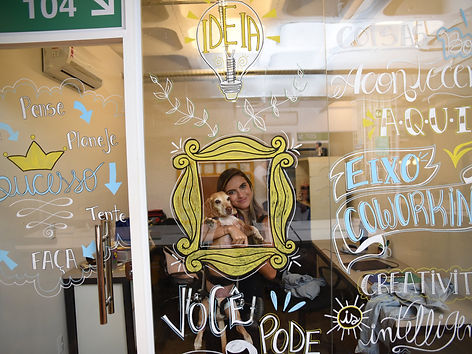 104
IDEIA
Pense
Planeje
Sucesso
Tente
FAÇA
VOCÊ
PODE
COISAS
Acontecem
AQUI
EIXO
COWORKIN
CREATIVIT
is
intelligen